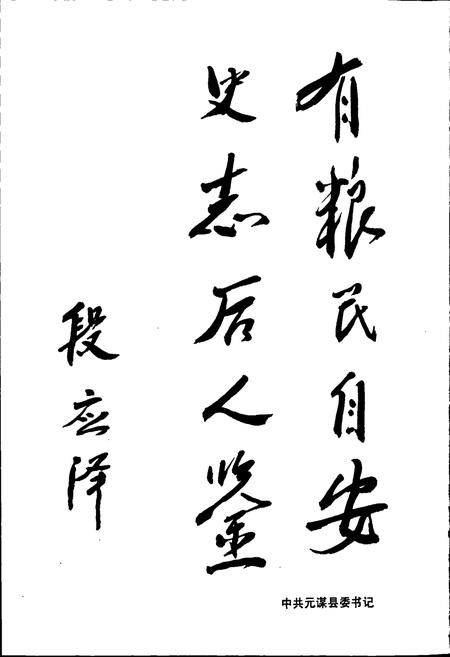 有粮民自安
史志后人鉴
段应泽
中共元谋县委书记